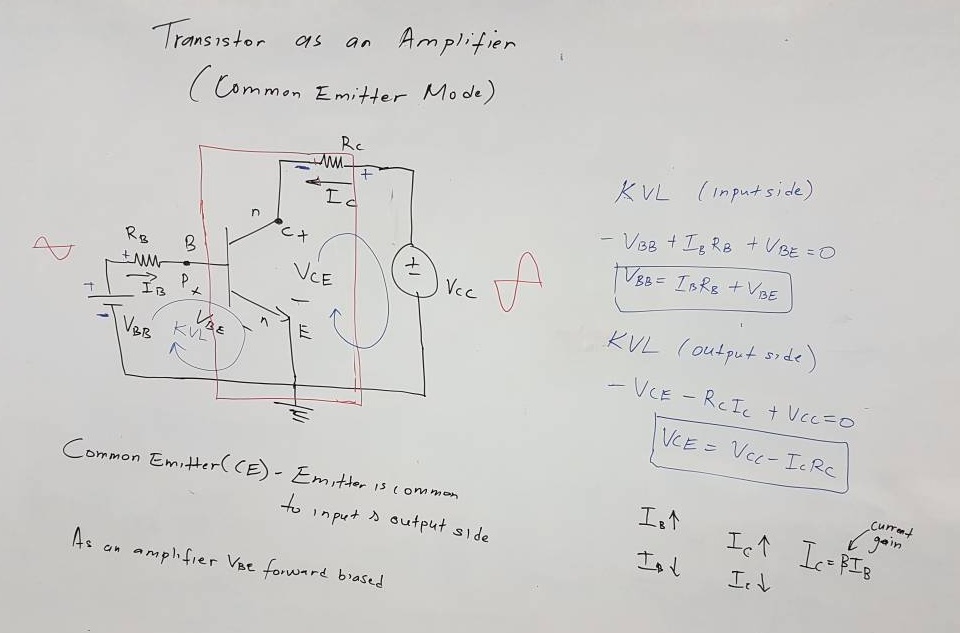 Transistor as an Amplifier
(Common Emitter Mode)
Rc
- +
Ic
n
C+
RB
B
+
IB
P
+
-
VBB
KVL
VBE
n
-
VCE
-
E
+
-
Vcc
KVL (input side)
- VBB + IB RB + VBE = 0
VBB = IBRB + VBE
KVL (output side)
- VCE - RcIc + Vcc = 0
VCE = Vcc - IcRc
Common Emitter (CE) - Emitter is common
to input & output side
As an amplifier VBE forward biased
IB↑
Ic↑
Ic = βIB
current
gain
IB↓
Ic↓